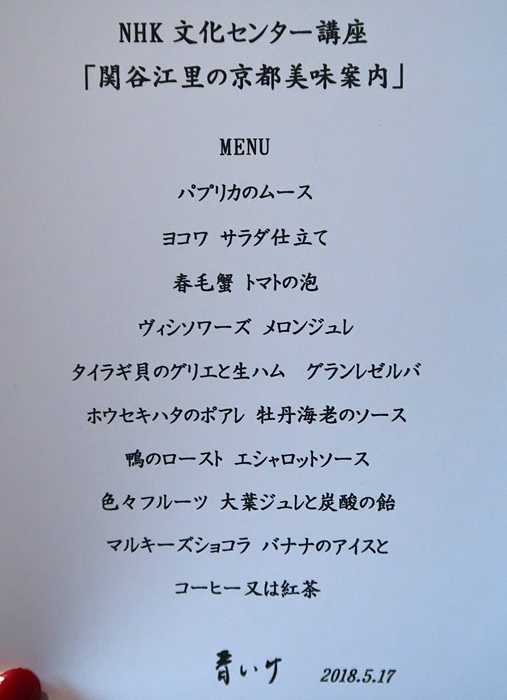 NHK 文化センター講座
「関谷江里の京都美味案内」
MENU
パプリカのムース
ヨコワ サラダ仕立て
春毛蟹 トマトの泡
ヴィシソワーズ メロンジュレ
タイラギ貝のグリエと生ハム グランレゼルバ
ホウセキハタのポアレ 牡丹海老のソース
鴨のロースト エシャロットソース
色々フルーツ 大葉ジュレと炭酸の飴
マルキーズショコラ バナナのアイスと
コーヒー又は紅茶
青いけ 2018.5.17